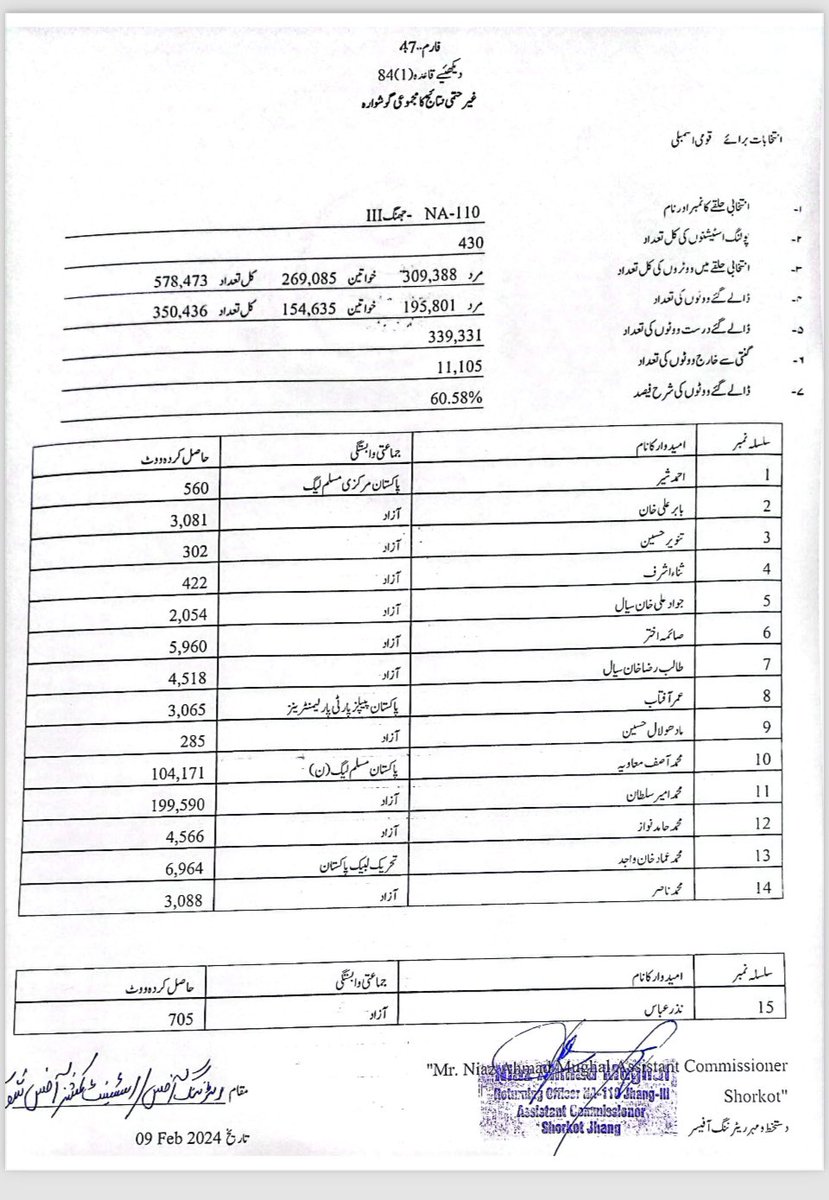 فارم-47
دیکھئیے قاعدہ (1)84
غیر حتمی نتائج کا مجموعی گوشوارہ
انتخابات برائے قومی اسمبلی
۱- انتخابی حلقے کا نمبر اور نام NA-110 -جھنگ III
۲- پولنگ اسٹیشنوں کی کل تعداد 430
۳- انتخابی حلقے میں ووٹروں کی کل تعداد مرد 309,388 خواتین 269,085 کل تعداد 578,473
۴- ڈالے گئے ووٹوں کی تعداد مرد 195,801 خواتین 154,635 کل تعداد 350,436
۵- ڈالے گئے درست ووٹوں کی تعداد 339,331
۶- گنتی سے خارج ووٹوں کی تعداد 11,105
۷- ڈالے گئے ووٹوں کی شرح فیصد 60.58%
سلسلہ نمبر امیدوار کا نام جماعتی وابستگی حاصل کردہ ووٹ
1 احمد شیر پاکستان مرکزی مسلم لیگ 560
2 بابر علی خان آزاد 3,081
3 تنویر حسین آزاد 302
4 ثناء اشرف آزاد 422
5 جواد علی خان سیال آزاد 2,054
6 صائمہ اختر آزاد 5,960
7 طالب رضا خان سیال آزاد 4,518
8 عمر آفتاب پاکستان پیپلز پارٹی پارلیمنٹرینز 3,065
9 مادھو لال حسین آزاد 285
10 محمد آصف معاویہ پاکستان مسلم لیگ (ن) 104,171
11 محمد امیر سلطان آزاد 199,590
12 محمد حامد نواز آزاد 4,566
13 محمد عماد خان واجد تحریک لبیک پاکستان 6,964
14 محمد ناصر آزاد 3,088
سلسلہ نمبر امیدوار کا نام جماعتی وابستگی حاصل کردہ ووٹ
15 نذر عباس آزاد 705
"Mr. Niaz Ahmad Mughal Assistant Commissioner
Shorkot"
Niaz Ahmad Mughal
Returning Officer NA-110 Jhang-III
Assistant Commissioner
Shorkot Jhang
دستخط و مہر ریٹرننگ آفیسر
مقام ریٹرننگ آفس / اسسٹنٹ کمشنر آفس
تاریخ 09 Feb 2024